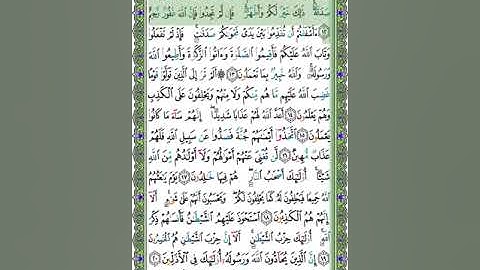 صَدَقَةً ۚ ذَٰلِكَ خَيْرٌ لَّكُمْ وَأَطْهَرُ ۚ فَإِن لَّمْ تَجِدُوا۟ فَإِنَّ ٱللَّهَ غَفُورٌ رَّحِيمٌ
١٢ ءَأَشْفَقْتُمْ أَن تُقَدِّمُوا۟ بَيْنَ يَدَىْ نَجْوَىٰكُمْ صَدَقَٰتٍ ۚ فَإِذْ لَمْ تَفْعَلُوا۟
وَتَابَ ٱللَّهُ عَلَيْكُمْ فَأَقِيمُوا۟ ٱلصَّلَوٰةَ وَءَاتُوا۟ ٱلزَّكَوٰةَ وَأَطِيعُوا۟ ٱللَّهَ
وَرَسُولَهُۥ ۚ وَٱللَّهُ خَبِيرٌۢ بِمَا تَعْمَلُونَ ١٣ ۞ أَلَمْ تَرَ إِلَى ٱلَّذِينَ تَوَلَّوْا۟ قَوْمًا
غَضِبَ ٱللَّهُ عَلَيْهِم مَّا هُم مِّنكُمْ وَلَا مِنْهُمْ وَيَحْلِفُونَ عَلَى ٱلْكَذِبِ
وَهُمْ يَعْلَمُونَ ١٤ أَعَدَّ ٱللَّهُ لَهُمْ عَذَابًا شَدِيدًا ۖ إِنَّهُمْ سَآءَ مَا كَانُوا۟
يَعْمَلُونَ ١٥ ٱتَّخَذُوٓا۟ أَيْمَٰنَهُمْ جُنَّةً فَصَدُّوا۟ عَن سَبِيلِ ٱللَّهِ فَلَهُمْ
عَذَابٌ مُّهِينٌ ١٦ لَّن تُغْنِىَ عَنْهُمْ أَمْوَٰلُهُمْ وَلَآ أَوْلَٰدُهُم مِّنَ ٱللَّهِ
شَيْـًٔا ۚ أُو۟لَٰٓئِكَ أَصْحَٰبُ ٱلنَّارِ ۖ هُمْ فِيهَا خَٰلِدُونَ ١٧ يَوْمَ يَبْعَثُهُمُ
ٱللَّهُ جَمِيعًا فَيَحْلِفُونَ لَهُۥ كَمَا يَحْلِفُونَ لَكُمْ ۖ وَيَحْسَبُونَ أَنَّهُمْ عَلَىٰ شَىْءٍ ۚ أَلَآ
إِنَّهُمْ هُمُ ٱلْكَٰذِبُونَ ١٨ ٱسْتَحْوَذَ عَلَيْهِمُ ٱلشَّيْطَٰنُ فَأَنسَىٰهُمْ ذِكْرَ
ٱللَّهِ ۚ أُو۟لَٰٓئِكَ حِزْبُ ٱلشَّيْطَٰنِ ۚ أَلَآ إِنَّ حِزْبَ ٱلشَّيْطَٰنِ هُمُ ٱلْخَٰسِرُونَ
١٩ إِنَّ ٱلَّذِينَ يُحَآدُّونَ ٱللَّهَ وَرَسُولَهُۥٓ أُو۟لَٰٓئِكَ فِى ٱلْأَذَلِّينَ ٢٠